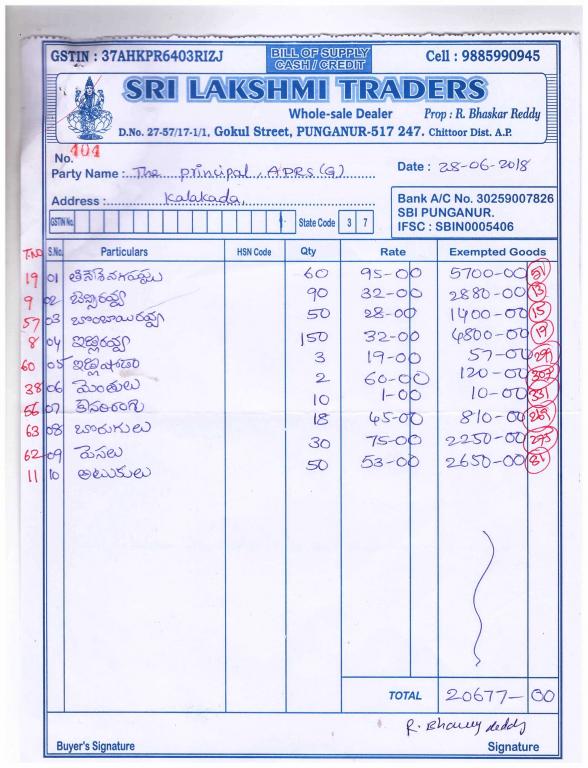 GSTIN : 37AHKPR6403RIZJ BILL OF SUPPLY Cell : 9885990945
CASH / CREDIT
SRI LAKSHMI TRADERS
Whole-sale Dealer Prop : R. Bhaskar Reddy
D.No. 27-57/17-1/1, Gokul Street, PUNGANUR-517 247. Chittoor Dist. A.P.
No. 404
Party Name : The principal, APRS (G) Date : 28-06-2018
Address : Kalakada,
Bank A/C No. 30259007826
SBI PUNGANUR.
IFSC : SBIN0005406
GSTIN No. State Code 3 7
T.NO S.No. Particulars HSN Code Qty Rate Exempted Goods
19 01 60 95-00 5700-00 51
9 02 బెన్సిరవ్వ 90 32-00 2880-00 13
57 03 బొంబాయిరవ్వ 50 28-00 1400-00 15
8 04 ఇడ్లిరవ్వ 150 32-00 4800-00 19
60 05 ఇడ్లిషోడా 3 19-00 57-00
38 06 మెంతులు 2 60-00 120-00 307
66 07 కేసరిరంగు 10 1-00 10-00 331
63 08 బొరుగులు 18 45-00 810-00
62 09 పెసలు 30 75-00 2250-00
11 10 అటుకులు 50 53-00 2650-00 81
TOTAL 20677-00
Buyer's Signature Signature